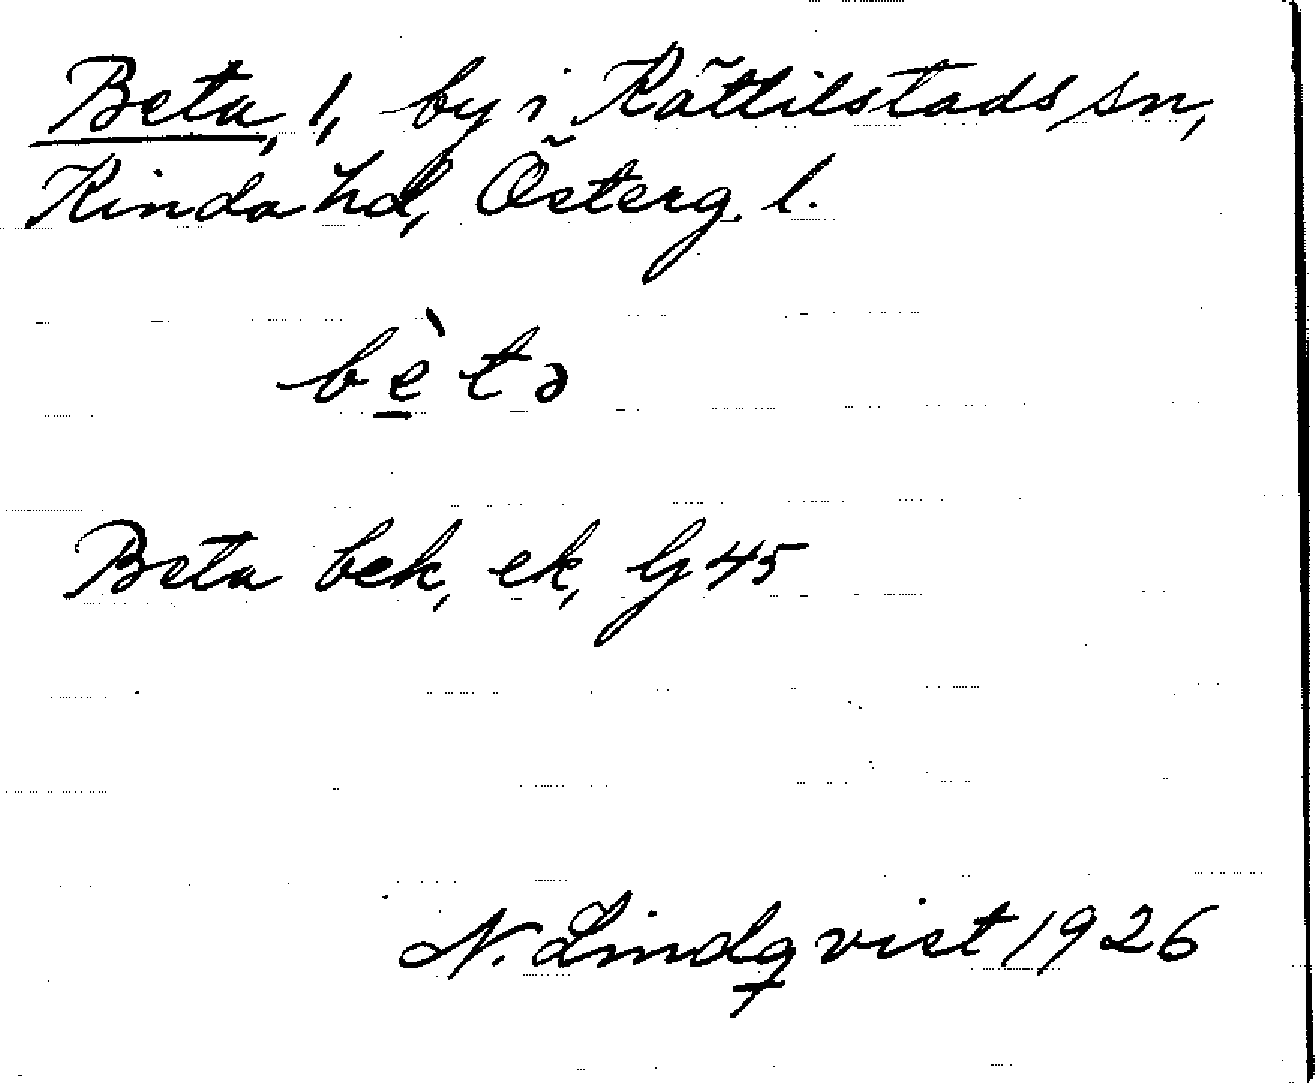 Beta, 1, by i Kättilstads sn,
Kinda hd, Österg. l.
bè̲tə
Beta bek, ek, Gg 45
N. Lindqvist 1926